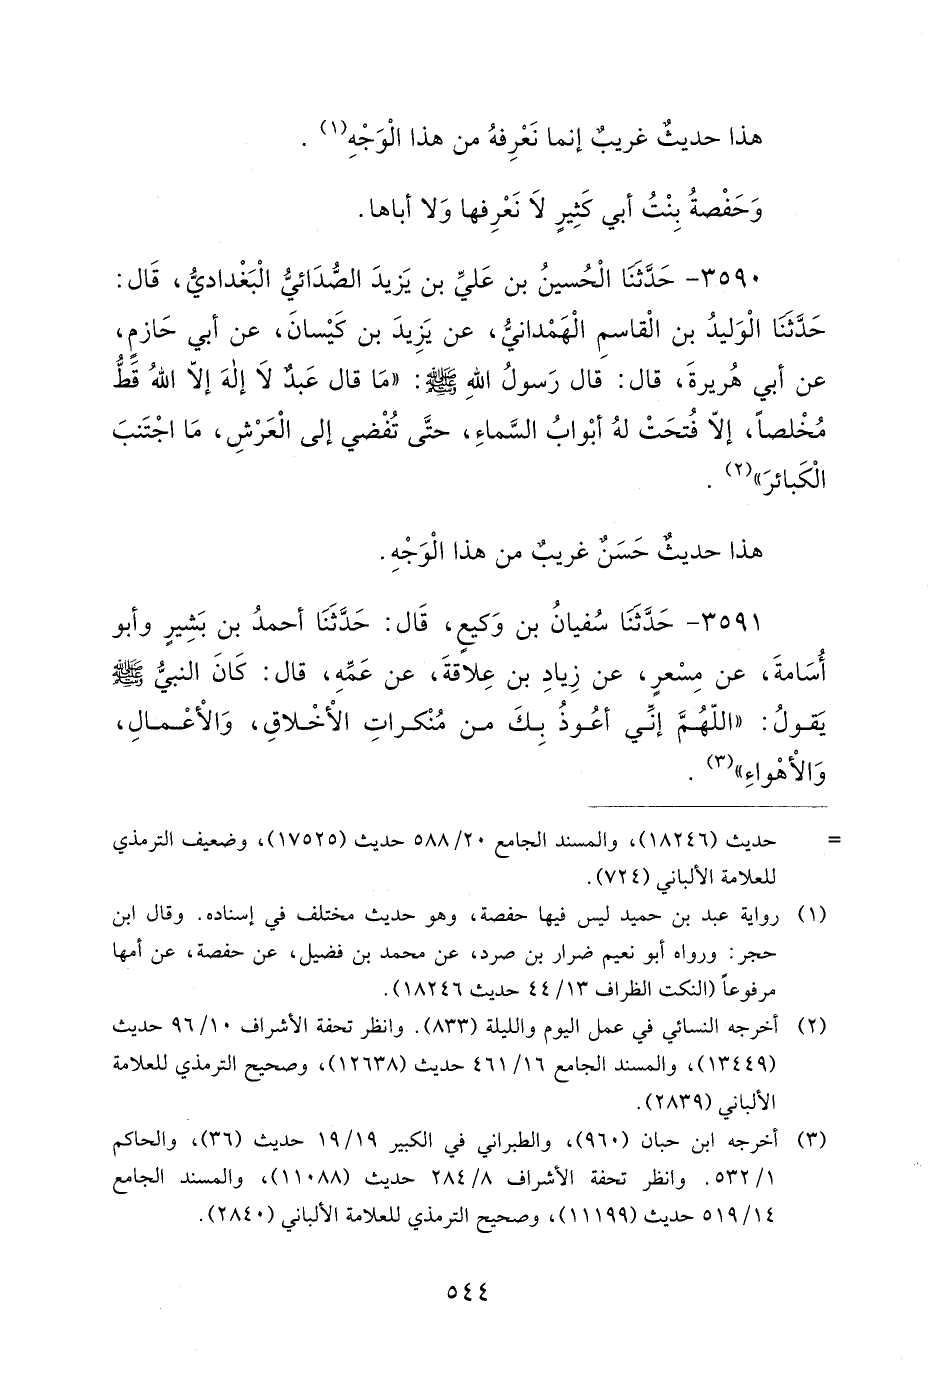 هذا حديثٌ غريبٌ إنما نَعْرِفهُ من هذا الْوَجْهِ(١) .
وَحَفْصةُ بِنْتُ أبي كَثِيرٍ لاَ نَعْرِفها وَلا أباها.
٣٥٩٠- حَدَّثَنَا الْحُسينُ بن عَليِّ بن يَزيدَ الصُّدَائيُّ الْبَغْداديُّ، قَال:
حَدَّثَنَا الْوَليدُ بن الْقاسمِ الْهَمْدانيُّ، عن يَزِيدَ بن كَيْسانَ، عن أبي حَازمٍ،
عن أبي هُريرةَ، قال: قال رَسولُ اللهِ ﷺ: «مَا قال عَبدٌ لاَ إلٰهَ إلاّ اللهُ قَطُّ
مُخْلصاً، إلاّ فُتحَتْ لهُ أبْوابُ السَّماءِ، حتَّى تُفْضي إلى الْعَرْشِ، مَا اجْتَنبَ
الْكَبائرَ»(٢) .
هذا حديثٌ حَسَنٌ غريبٌ من هذا الْوَجْهِ.
٣٥٩١- حَدَّثَنَا سُفيانُ بن وَكيعٍ، قَال: حَدَّثَنَا أحمدُ بن بَشِيرٍ وأبو
أُسَامةَ، عن مِسْعرٍ، عن زِيادِ بن عِلاقةَ، عن عَمِّهِ، قال: كَانَ النبيُّ ﷺ
يَقولُ: «اللّهُمَّ إنِّي أعُوذُ بِكَ من مُنْكراتِ الأخْلاقِ، وَالأعْمالِ،
وَالأهْواءِ»(٣) .
= حديث (١٨٢٤٦)، والمسند الجامع ٢٠/ ٥٨٨ حديث (١٧٥٢٥)، وضعيف الترمذي
للعلامة الألباني (٧٢٤).
(١) رواية عبد بن حميد ليس فيها حفصة، وهو حديث مختلف في إسناده. وقال ابن
حجر: ورواه أبو نعيم ضرار بن صرد، عن محمد بن فضيل، عن حفصة، عن أمها
مرفوعاً (النكت الظراف ١٣/ ٤٤ حديث ١٨٢٤٦).
(٢) أخرجه النسائي في عمل اليوم والليلة (٨٣٣). وانظر تحفة الأشراف ١٠/ ٩٦ حديث
(١٣٤٤٩)، والمسند الجامع ١٦/ ٤٦١ حديث (١٢٦٣٨)، وصحيح الترمذي للعلامة
الألباني (٢٨٣٩).
(٣) أخرجه ابن حبان (٩٦٠)، والطبراني في الكبير ١٩/ ١٩ حديث (٣٦)، والحاكم
١/ ٥٣٢. وانظر تحفة الأشراف ٨/ ٢٨٤ حديث (١١٠٨٨)، والمسند الجامع
١٤/ ٥١٩ حديث (١١١٩٩)، وصحيح الترمذي للعلامة الألباني (٢٨٤٠).
٥٤٤